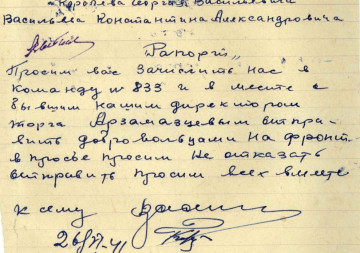 Королева Георгия Васильевича
Васильва Константина Александровича
Рапорт"
Просим вас зачислить нас в
команду № 833 и в месте с
бывшим нашим директором
торга Арзамазцевым отпра-
вить добровольцами на фронт
в просбе просим не отказать
отправить просим всех вместе
к сему
26/VI-41